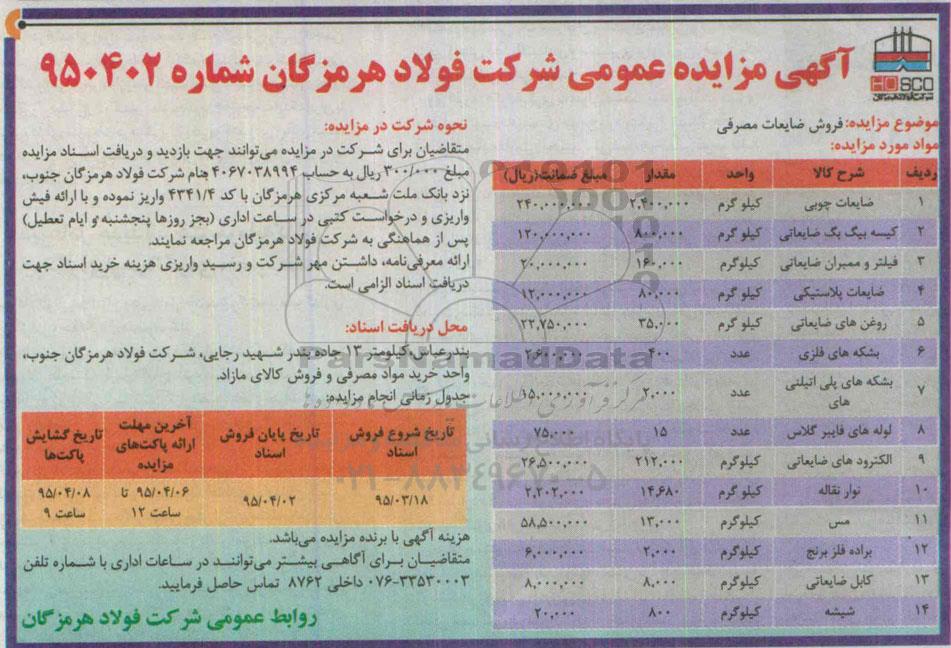 آگهی مزایده عمومی شرکت فولاد هرمزگان شماره ۹۵۰۴۰۲
HOSCO
شرکت فولاد هرمزگان
موضوع مزایده: فروش ضایعات مصرفی
مواد مورد مزایده:
ردیف شرح کالا واحد مقدار مبلغ ضمانت(ریال)
۱ ضایعات چوبی کیلو گرم ۲,۴۰۰,۰۰۰ ۲۴۰,۰۰۰,۰۰۰
۲ کیسه بیگ بگ ضایعاتی کیلو گرم ۸۰۰,۰۰۰ ۱۲۰,۰۰۰,۰۰۰
۳ فیلتر و ممبران ضایعاتی کیلوگرم ۱۶۰,۰۰۰ ۲۰,۰۰۰,۰۰۰
۴ ضایعات پلاستیکی کیلو گرم ۸۰,۰۰۰ ۱۲,۰۰۰,۰۰۰
۵ روغن های ضایعاتی کیلو گرم ۳۵,۰۰۰ ۲۲,۷۵۰,۰۰۰
۶ بشکه های فلزی عدد ۴۰۰ ۲,۶۰۰,۰۰۰
۷ بشکه های پلی اتیلنی عدد ۲,۰۰۰ ۱۵,۰۰۰,۰۰۰
های
۸ لوله های فایبر گلاس عدد ۱۵ ۷۵,۰۰۰
۹ الکترود های ضایعاتی کیلوگرم ۲۱۲,۰۰۰ ۲۶,۵۰۰,۰۰۰
۱۰ نوار نقاله کیلو گرم ۱۴,۶۸۰ ۲,۲۰۲,۰۰۰
۱۱ مس کیلوگرم ۱۳,۰۰۰ ۵۸,۵۰۰,۰۰۰
۱۲ براده فلز برنج کیلوگرم ۲,۰۰۰ ۶,۰۰۰,۰۰۰
۱۳ کابل ضایعاتی کیلوگرم ۸,۰۰۰ ۸,۰۰۰,۰۰۰
۱۴ شیشه کیلوگرم ۸۰۰ ۲۰,۰۰۰
نحوه شرکت در مزایده:
متقاضیان برای شرکت در مزایده می‌توانند جهت بازدید و دریافت اسناد مزایده
مبلغ ۳۰۰/۰۰۰ ریال به حساب ۴۰۶۷۰۳۸۹۹۴ بنام شرکت فولاد هرمزگان جنوب،
نزد بانک ملت شعبه مرکزی هرمزگان با کد ۴۳۴۱/۴ واریز نموده و با ارائه فیش
واریزی و درخواست کتبی در ساعت اداری (بجز روزها پنجشنبه و ایام تعطیل)
پس از هماهنگی به شرکت فولاد هرمزگان مراجعه نمایند.
ارائه معرفی‌نامه، داشتن مهر شرکت و رسید واریزی هزینه خرید اسناد جهت
دریافت اسناد الزامی است.
محل دریافت اسناد:
بندرعباس کیلومتر ۱۳ جاده بندر شهید رجایی، شرکت فولاد هرمزگان جنوب،
واحد خرید مواد مصرفی و فروش کالای مازاد.
جدول زمانی انجام مزایده:
تاریخ شروع فروش اسناد تاریخ پایان فروش اسناد آخرین مهلت ارائه پاکت‌های مزایده تاریخ گشایش پاکت‌ها
۹۵/۰۳/۱۸ ۹۵/۰۴/۰۲ ۹۵/۰۴/۰۶ تا ساعت ۱۲ ۹۵/۰۴/۰۸ ساعت ۹
هزینه آگهی با برنده مزایده می‌باشد.
متقاضیان برای آگاهی بیشتر می‌توانند در ساعات اداری با شماره تلفن
۰۷۶-۳۳۵۳۰۰۰۳ داخلی ۸۷۶۲ تماس حاصل فرمایید.
روابط عمومی شرکت فولاد هرمزگان
ParsNamadData
۰۲۱-۸۸۳۴۹۶۷۰-۵